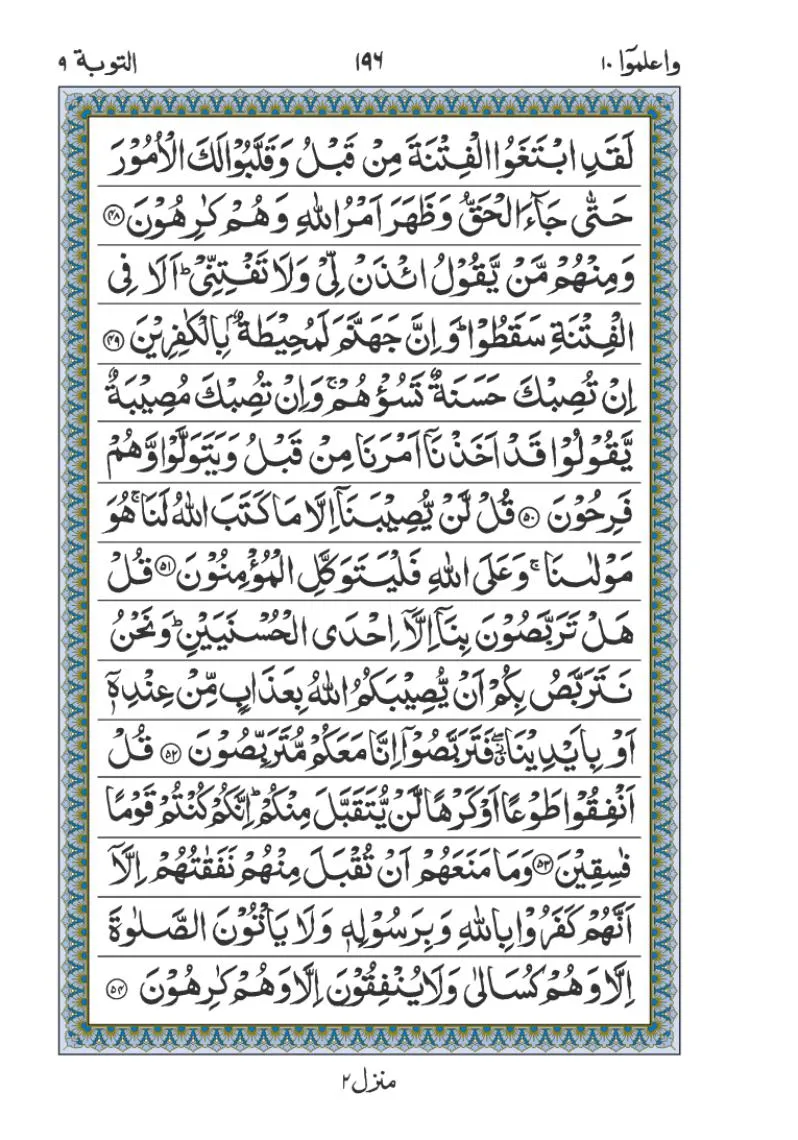 واعلموٓا ١٠ ١٩٦ التوبة ٩
لَقَدِ ابْتَغَوُا الْفِتْنَةَ مِنْ قَبْلُ وَقَلَّبُوْا لَكَ الْاُمُوْرَ
حَتّٰى جَآءَ الْحَقُّ وَظَهَرَ اَمْرُ اللّٰهِ وَهُمْ كٰرِهُوْنَ ﴿۴۸﴾
وَمِنْهُمْ مَّنْ يَّقُوْلُ ائْذَنْ لِّيْ وَلَا تَفْتِنِّيْ ؕ اَلَا فِى
الْفِتْنَةِ سَقَطُوْا ؕ وَاِنَّ جَهَنَّمَ لَمُحِيْطَةٌۢ بِالْكٰفِرِيْنَ ﴿۴۹﴾
اِنْ تُصِبْكَ حَسَنَةٌ تَسُؤْهُمْ ۚ وَاِنْ تُصِبْكَ مُصِيْبَةٌ
يَّقُوْلُوْا قَدْ اَخَذْنَاۤ اَمْرَنَا مِنْ قَبْلُ وَيَتَوَلَّوْا وَّهُمْ
فَرِحُوْنَ ﴿۵۰﴾ قُلْ لَّنْ يُّصِيْبَنَاۤ اِلَّا مَا كَتَبَ اللّٰهُ لَنَا ۚ هُوَ
مَوْلٰىنَا ۚ وَعَلَى اللّٰهِ فَلْيَتَوَكَّلِ الْمُؤْمِنُوْنَ ﴿۵۱﴾ قُلْ
هَلْ تَرَبَّصُوْنَ بِنَاۤ اِلَّاۤ اِحْدَى الْحُسْنَيَيْنِ ؕ وَنَحْنُ
نَتَرَبَّصُ بِكُمْ اَنْ يُّصِيْبَكُمُ اللّٰهُ بِعَذَابٍ مِّنْ عِنْدِهٖۤ
اَوْ بِاَيْدِيْنَا ۖؗ فَتَرَبَّصُوْۤا اِنَّا مَعَكُمْ مُّتَرَبِّصُوْنَ ﴿۵۲﴾ قُلْ
اَنْفِقُوْا طَوْعًا اَوْ كَرْهًا لَّنْ يُّتَقَبَّلَ مِنْكُمْ ؕ اِنَّكُمْ كُنْتُمْ قَوْمًا
فٰسِقِيْنَ ﴿۵۳﴾ وَمَا مَنَعَهُمْ اَنْ تُقْبَلَ مِنْهُمْ نَفَقٰتُهُمْ اِلَّاۤ
اَنَّهُمْ كَفَرُوْا بِاللّٰهِ وَبِرَسُوْلِهٖ وَلَا يَاْتُوْنَ الصَّلٰوةَ
اِلَّا وَهُمْ كُسَالٰى وَلَا يُنْفِقُوْنَ اِلَّا وَهُمْ كٰرِهُوْنَ ﴿۵۴﴾
منزل ٢